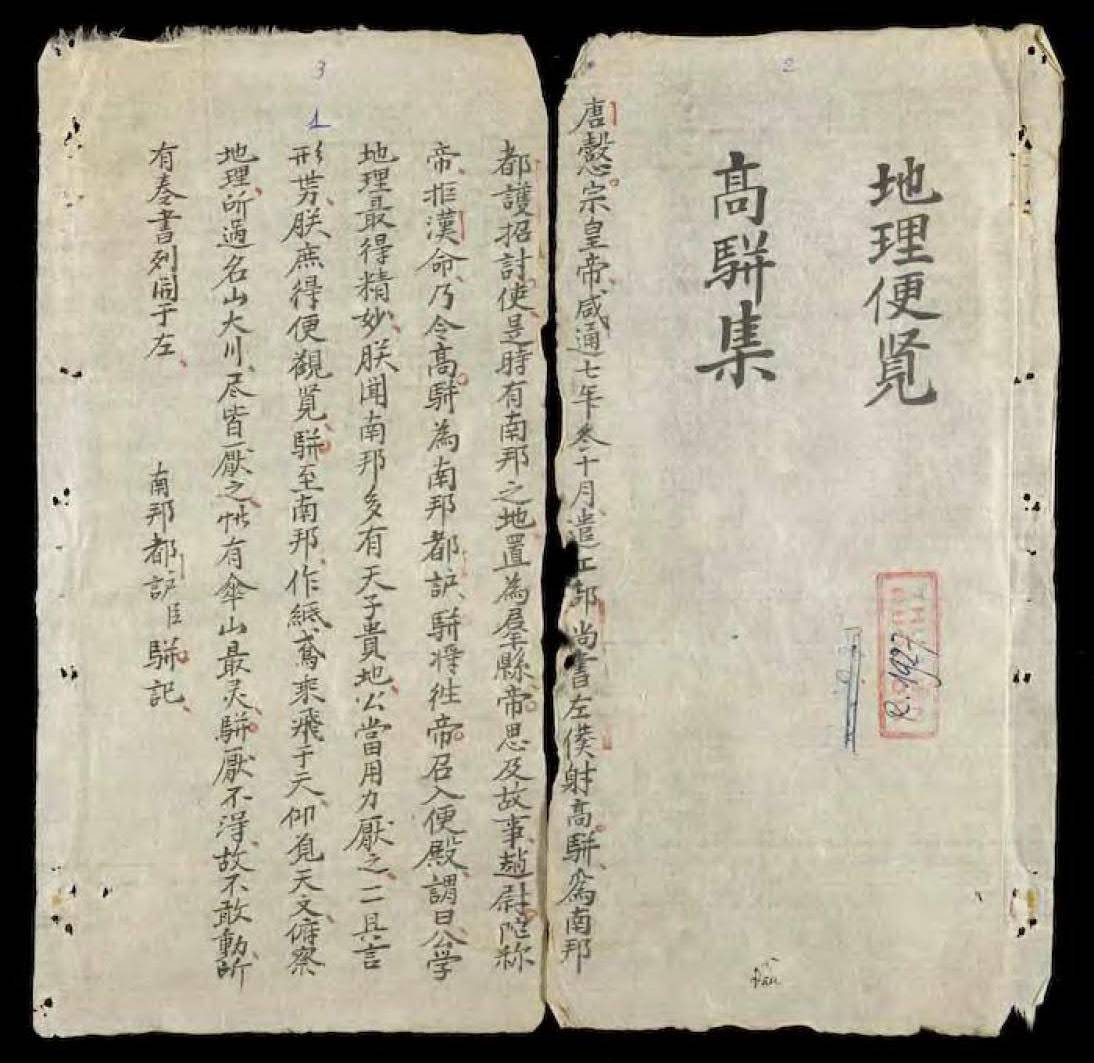 2
地理便覧
高駢集
R.1927
唐懿宗皇帝咸通七年冬十月遣工部尚書左僕射高駢為南邦
3
1
都護招討使是時有南邦之地置為郡縣帝思及故事趙尉陀称
帝拒漢命乃令高駢為南邦都護駢将徃帝召入便殿謂曰公学
地理最得精妙朕聞南邦多有天子貴地公當用力厭之一二具言
形势朕庶得便觀覧駢至南邦作紙鳶乘飛于天仰覓天文俯察
地理所過名山大川尽皆厭之惟有傘山最灵駢厭不得故不敢動所
有奏書列同于左 南邦都護臣駢記